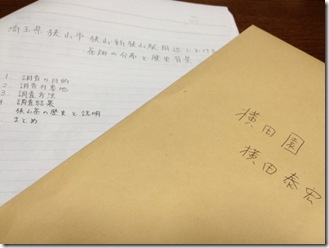 埼玉県狭山市狭山新狭山駅周辺における
茶畑の分布と歴史背景
1. 調査の目的
2. 調査対象地
3. 調査方法
4 調査結果
狭山茶の歴史と説明
まとめ
横田園
横田泰宏